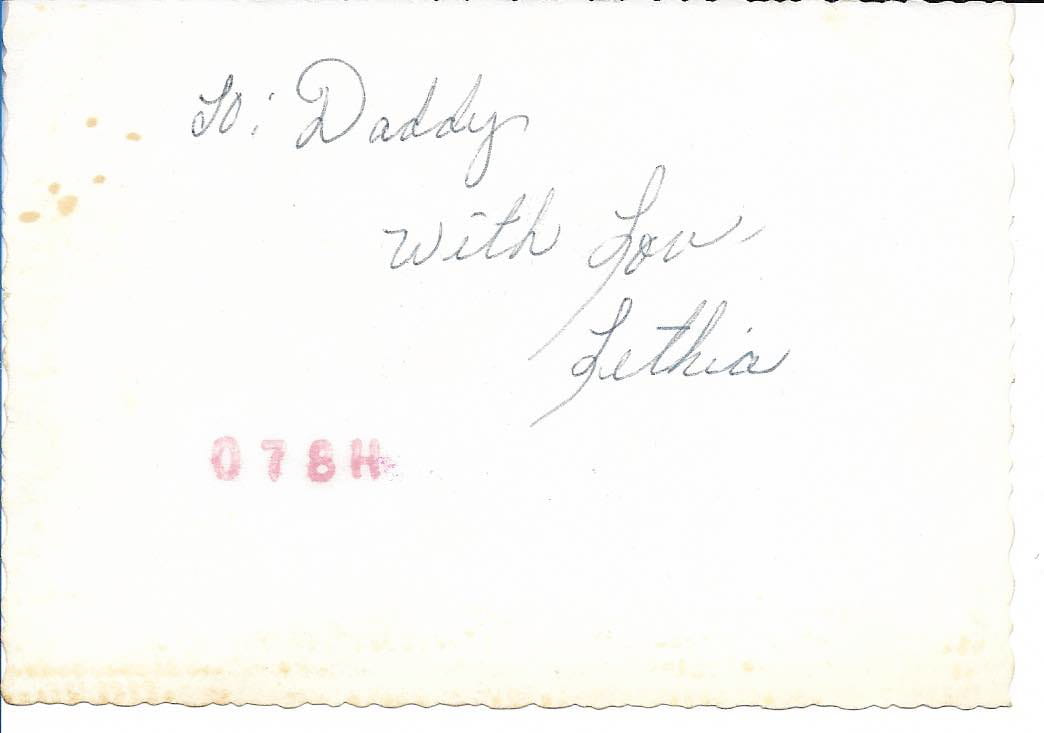 To: Daddy
With Lov
Lethia
078H